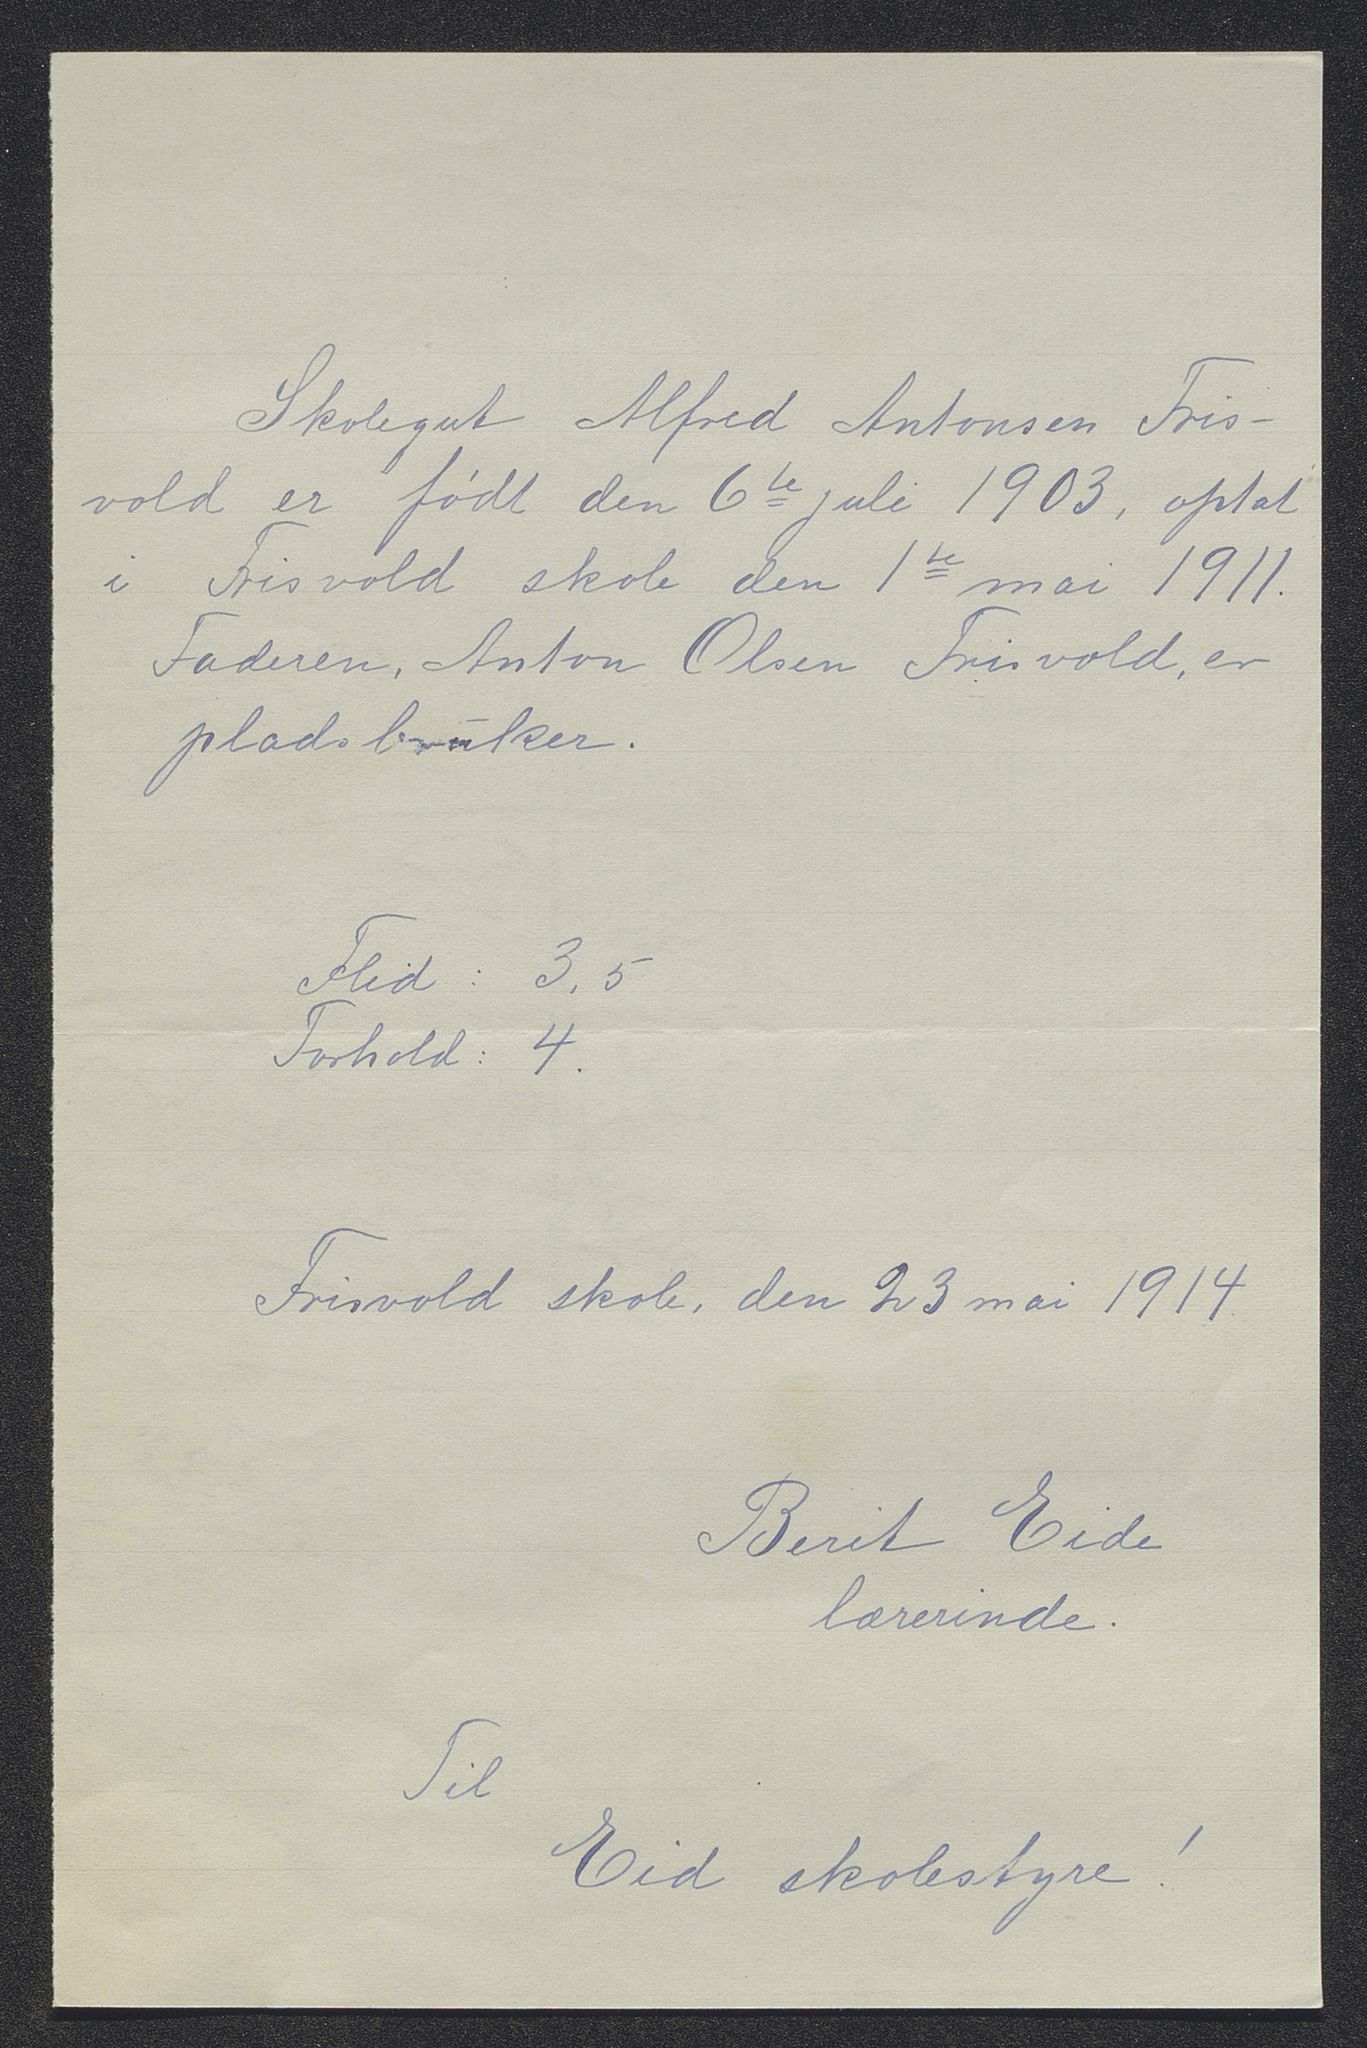 Skolegut Alfred Antonsen Fris-
vold er födt den 6te juli 1903, optat
i Frisvold skole den 1te mai 1911.
Faderen, Anton Olsen Frisvold, er
pladsbruker.
Flid : 3,5
Forhold : 4.
Frisvold skole, den 23 mai 1914
Berit Eide
lærerinde.
Til
Eid skolestyre!